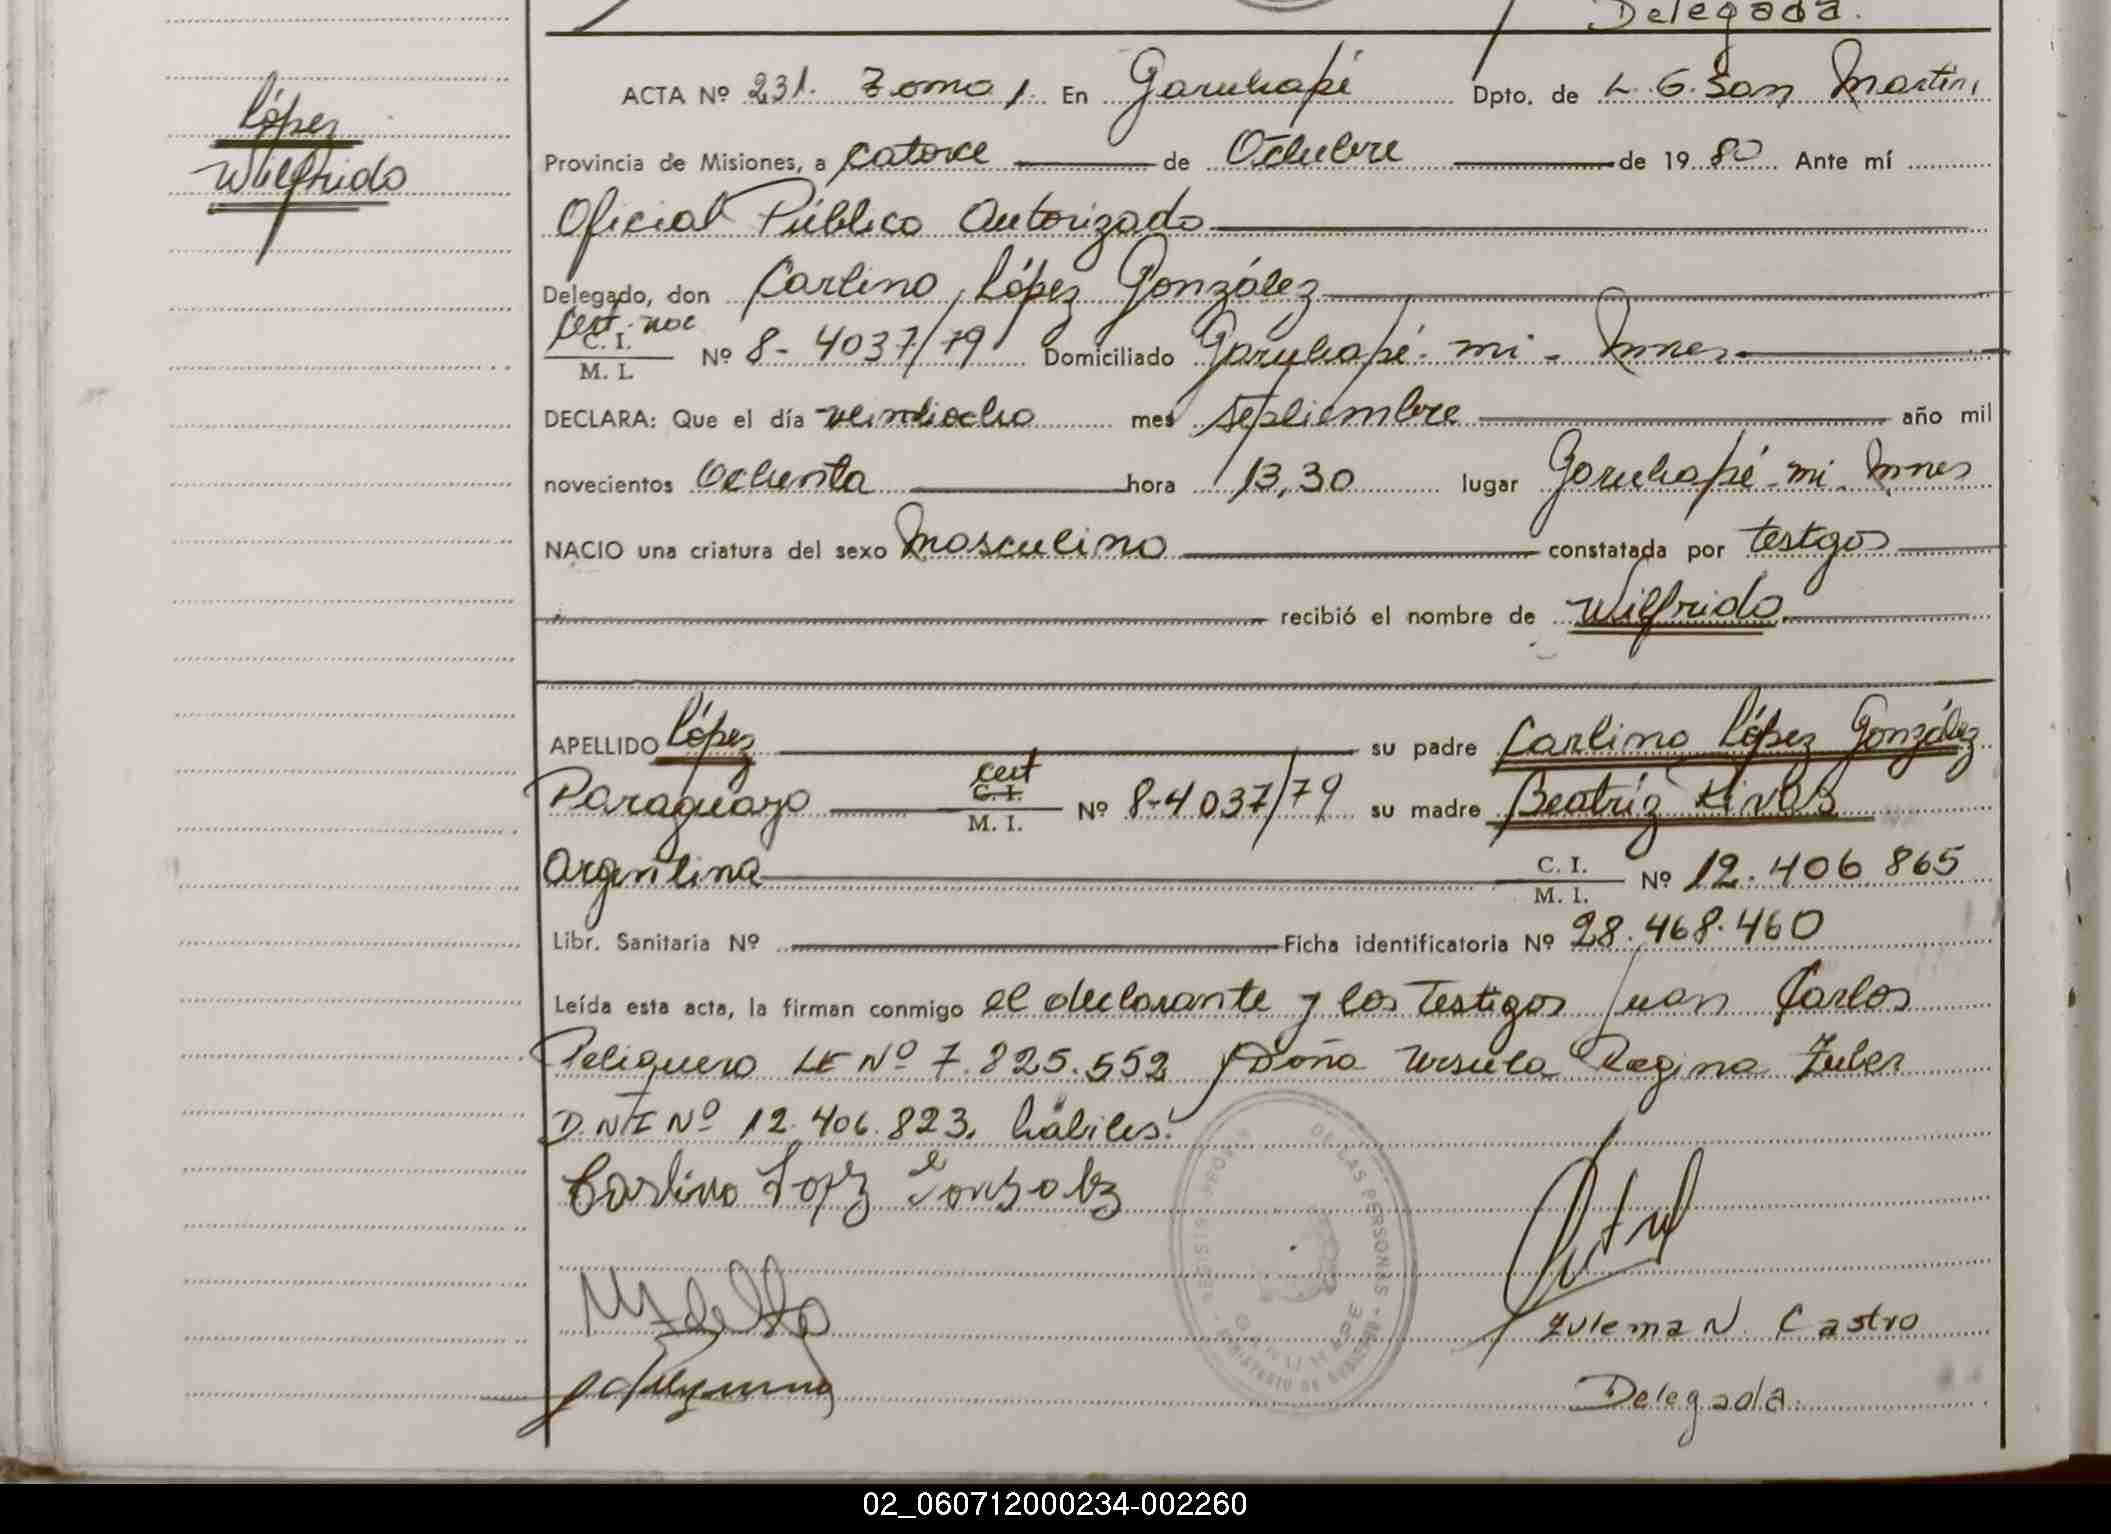 Delegada.
López
Wilfrido
ACTA Nº 231. Tomo 1. En Garuhapé Dpto. de L. G. San Martín,
Provincia de Misiones, a catorce de Octubre de 1980 Ante mí
Oficial Público Autorizado
Delegado, don Carlino López González
Cert. nac
C. I.
M. I. Nº 8-4037/79 Domiciliado Garuhapé-mi-Mnes
DECLARA: Que el día veintiocho mes septiembre año mil
novecientos Ochenta hora 13,30 lugar Garuhapé-mi Mnes
NACIO una criatura del sexo Masculino constatada por testigos
recibió el nombre de Wilfrido
APELLIDO López su padre Carlino López González
Paraguayo cert C. I. M. I. Nº 8-4037/79 su madre Beatríz Rivas
Argentina C. I. M. I. Nº 12.406 865
Libr. Sanitaria Nº Ficha identificatoria Nº 28.468.460
Leída esta acta, la firman conmigo el declarante y los Testigos Juan Carlos
Peliquero LE Nº 7.825.552 y Doña Ursula Regina Zuber
D.N.I Nº 12.406.823. hábiles.
Carlino Lopz Gonzalez
REGISTRO PROV. DE LAS PERSONAS - MINISTERIO DE GOBIERNO
GARUHAPE
Zulema N. Castro
Delegada.
02_060712000234-002260